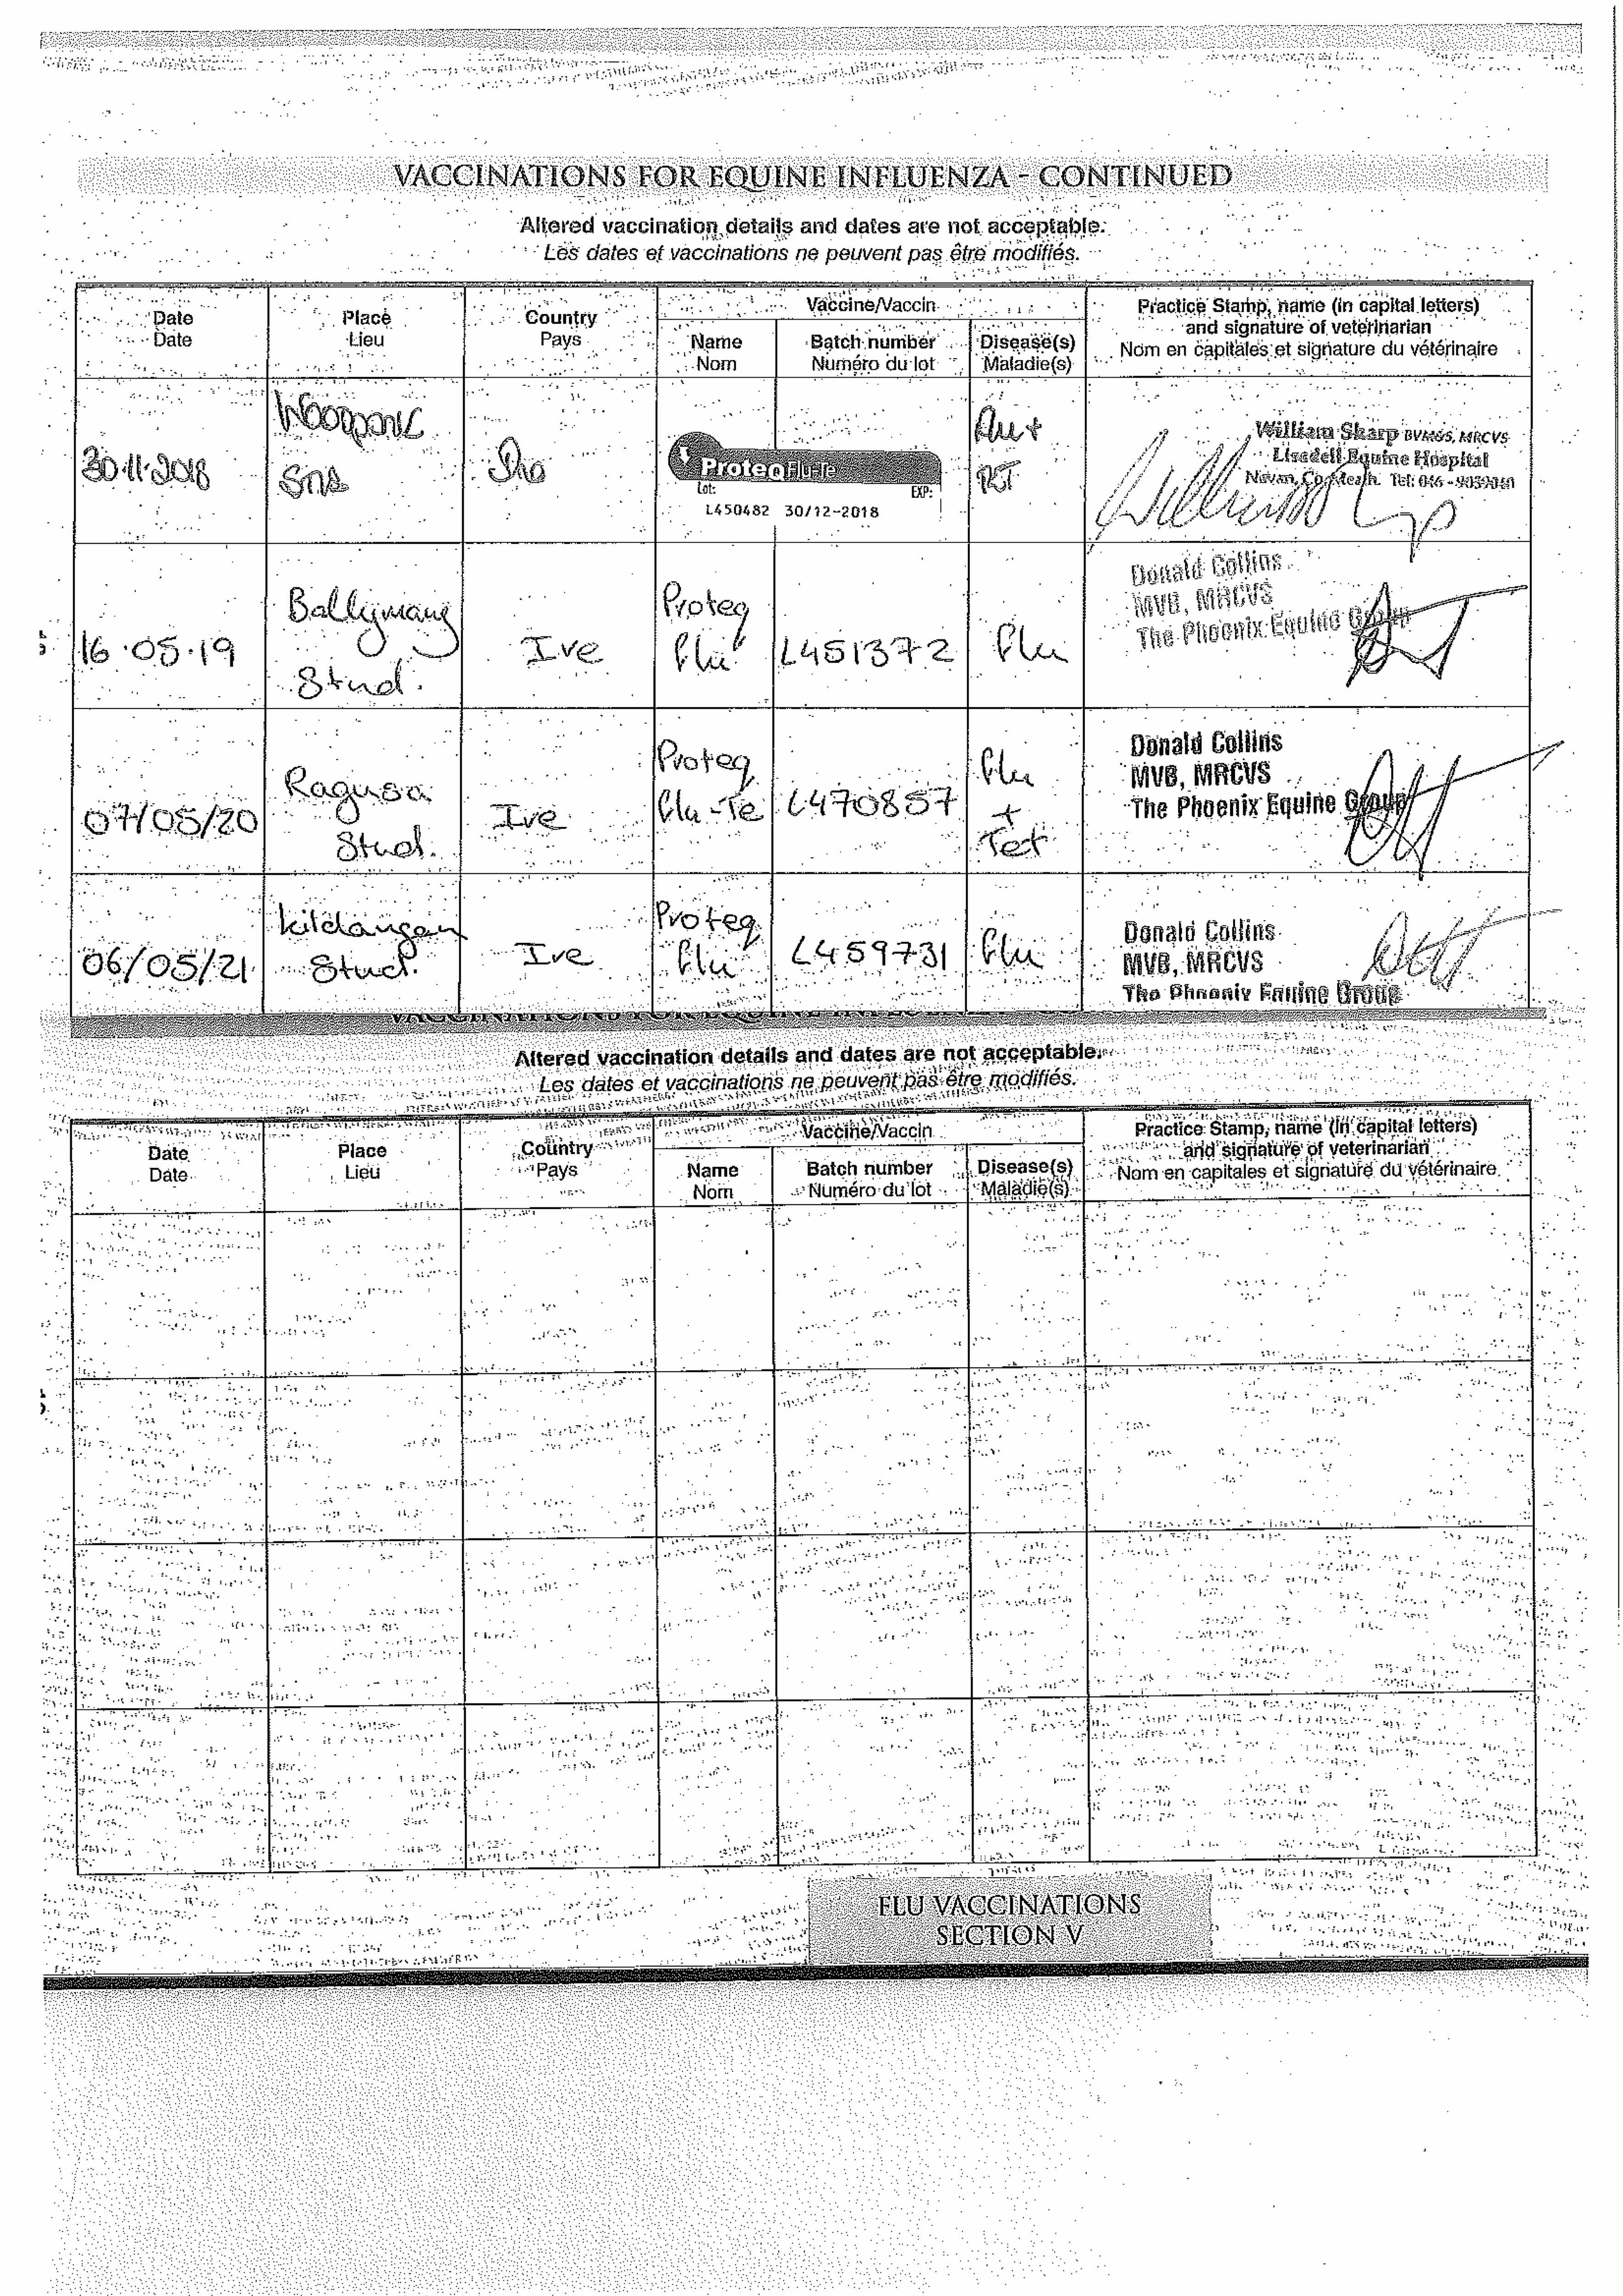 VACCINATIONS FOR EQUINE INFLUENZA - CONTINUED
Altered vaccination details and dates are not acceptable.
Les dates et vaccinations ne peuvent pas être modifiés.
Date
Date
Place
Lieu
Country
Pays
Vaccine/Vaccin
Name
Nom
Batch number
Numéro du lot
Disease(s)
Maladie(s)
Practice Stamp, name (in capital letters)
and signature of veterinarian
Nom en capitales et signature du vétérinaire
30.11.2018
ProteqFlu-Te
Lot: EXP:
L450482 30/12-2018
William Sharp BVM&S, MRCVS
Lisadell Equine Hospital
Navan, Co. Meath. Tel: 046 -
16.05.19
Ballymany
Stud.
Ire
Proteq
Flu
L451372
Flu
Donald Collins
MVB, MRCVS
The Phoenix Equine Group
07/05/20
Ragusa
Stud.
Ire
Proteq
Flu-Te
L470857
Flu
+
Tet
Donald Collins
MVB, MRCVS
The Phoenix Equine Group
06/05/21
Kildangan
Stud.
Ire
Proteq
Flu
L459731
Flu
Donald Collins
MVB, MRCVS
The Phoenix Equine Group
Altered vaccination details and dates are not acceptable.
Les dates et vaccinations ne peuvent pas être modifiés.
Date
Date
Place
Lieu
Country
Pays
Vaccine/Vaccin
Name
Nom
Batch number
Numéro du lot
Disease(s)
Maladie(s)
Practice Stamp, name (in capital letters)
and signature of veterinarian
Nom en capitales et signature du vétérinaire
FLU VACCINATIONS
SECTION V